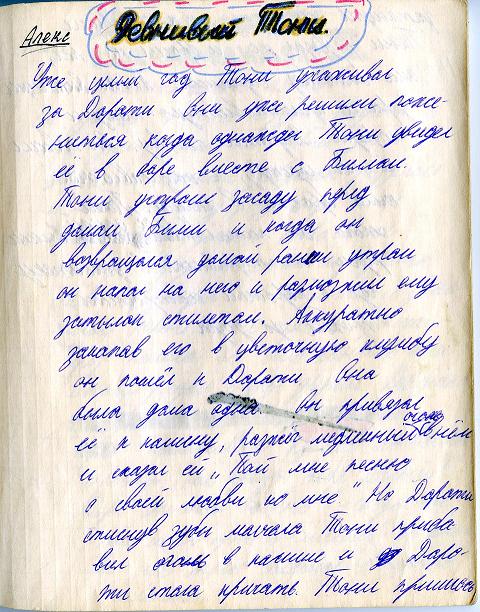 Алекс
Ревнивый Тони.
Уже целый год Тони ухаживал
за Дороти они уже решили поже-
ниться когда однажды Тони увидел
её в баре вместе с Биллом.
Тони устроил засаду перед
домом Билли и когда он
возвращался домой рано утром
он напал на него и размозжил ему
затылок стилетом. Аккуратно
закопав его в цветочную клумбу
он пошёл к Дороти Она
была дома одна. Он привязал
её к камину, разжёг медленный огонь в нём
и сказал ей „Пой мне песню
о своей любви ко мне" Но Дороти
стиснув зубы молчала Тони приба
вил огонь в камине и Доро-
ти стала кричать. Тони пришлось